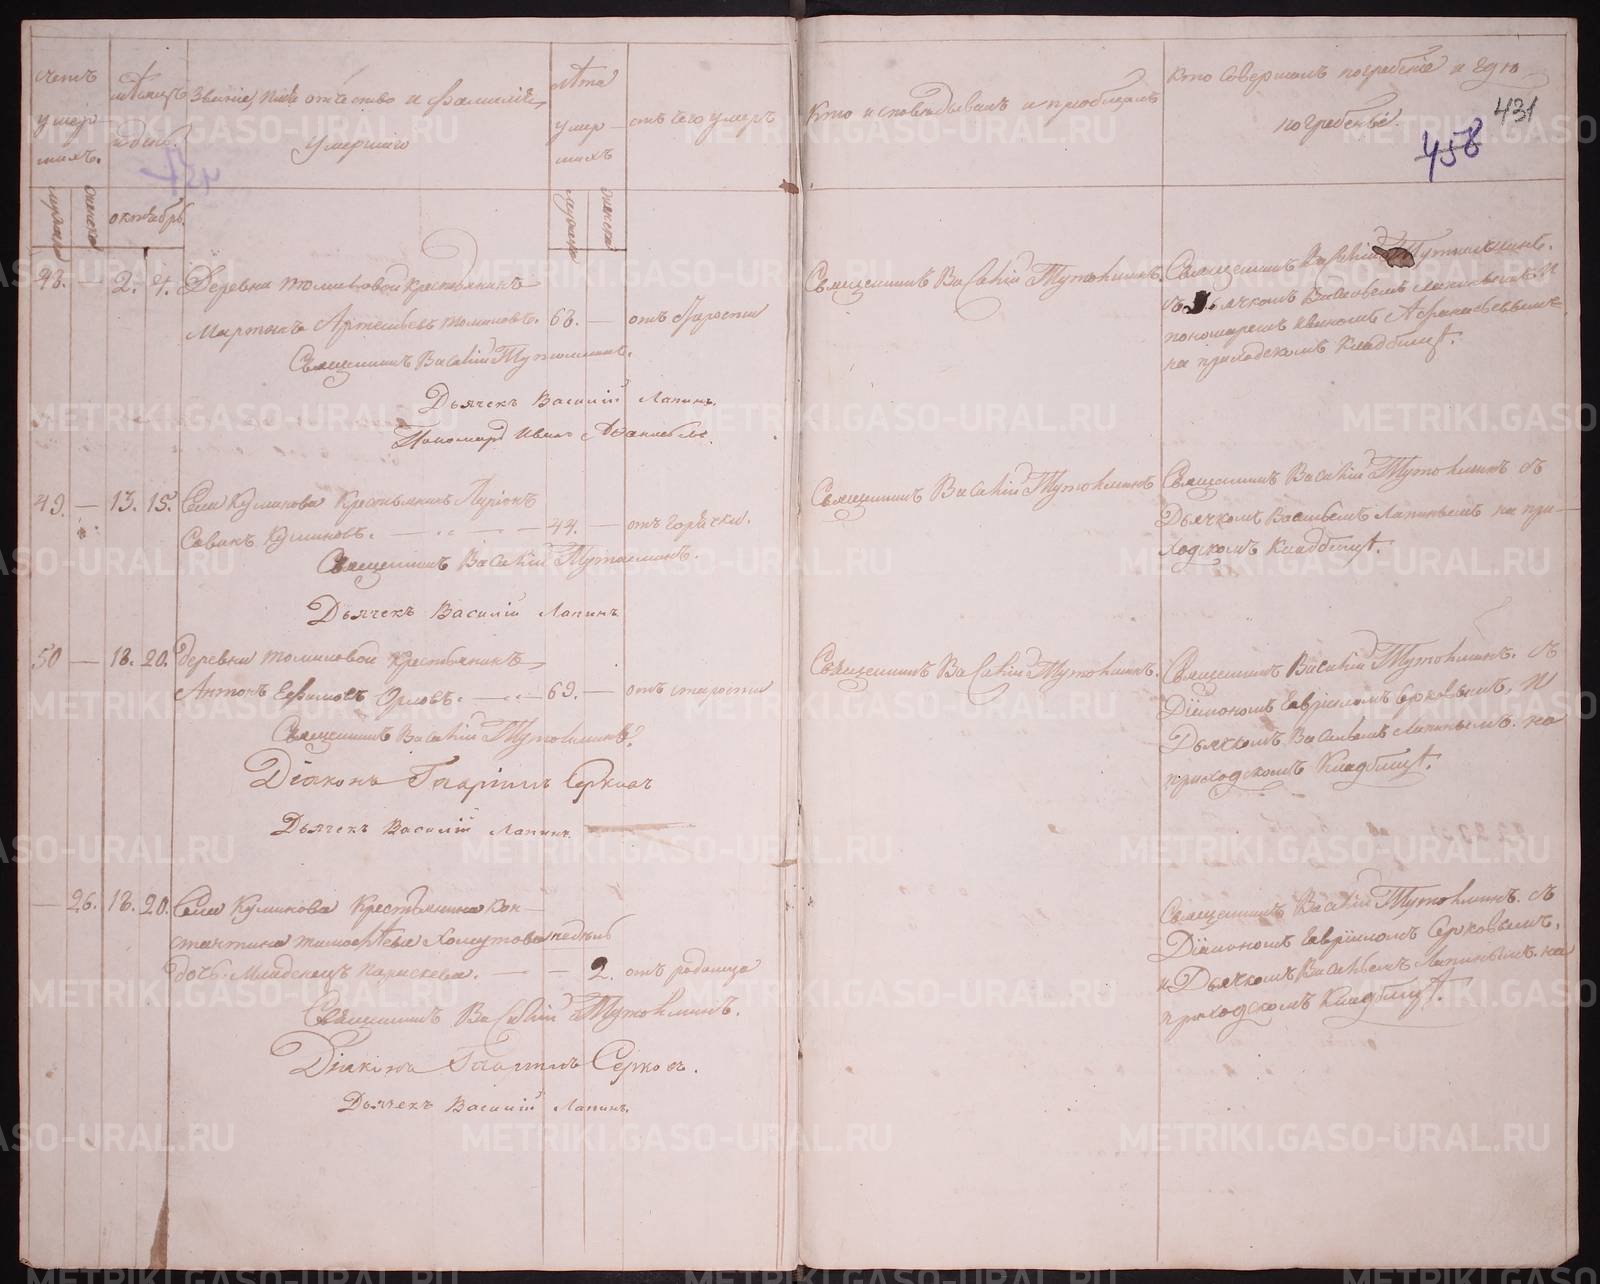 счетъ умершихъ.
мѣсяцъ и день.
Званiе, имя отчество и фамилiя умершаго
лѣта умершихъ
отъ чего умеръ
Кто исповѣдывалъ и прiобщалъ
Кто совершалъ погребенiе и гдѣ погребены.
431
458
мужеска
женска
октябрь.
мужеска
женска
48. — 2. 4. Деревни Томиловой крестьянинъ
Мартынъ Артемьевъ Томиловъ. 68. — отъ старости
Священникъ Василiй Тутолминъ.
Дьячекъ Василiй Лапинъ.
Пономарь Иванъ
Священникъ Василiй Тутолминъ.
Священникъ Василiй Тутолминъ.
съ дьячкомъ Васильемъ Лапинымъ и
пономаремъ Иваномъ
на приходскомъ кладбищѣ.
49. — 13. 15. Села Куликова крестьянинъ
Куликовъ. — 44. — отъ горячки.
Священникъ Василiй Тутолминъ.
Дьячекъ Василiй Лапинъ
Священникъ Василiй Тутолминъ
Священникъ Василiй Тутолминъ съ
Дьячкомъ Васильемъ Лапинымъ на при-
ходскомъ кладбищѣ.
50 — 18. 20. Деревни Томиловой крестьянинъ
Антонъ Ефимовъ Орловъ. — 69. — отъ старости
Священникъ Василiй Тутолминъ.
Дiаконъ Гаврiилъ Серковъ
Дьячекъ Василiй Лапинъ.
Священникъ Василiй Тутолминъ.
Священникъ Василiй Тутолминъ. съ
Дiакономъ Гаврiиломъ Серковымъ, и
Дьячкомъ Васильемъ Лапинымъ. на
приходскомъ кладбищѣ.
— 26. 18. 20. Села Куликова крестьянина Кон-
стантина Тимофѣева Хомутова недѣль
дочь младенецъ Параскева. — — 2. отъ родимца
Священникъ Василiй Тутолминъ.
Дiаконъ Гаврiилъ Серковъ.
Дьячекъ Василiй Лапинъ.
Священникъ Василiй Тутолминъ. съ
Дiакономъ Гаврiиломъ Серковымъ,
и Дьячкомъ Васильемъ Лапинымъ. на
приходскомъ кладбищѣ.
METRIKI.GASO-URAL.RU